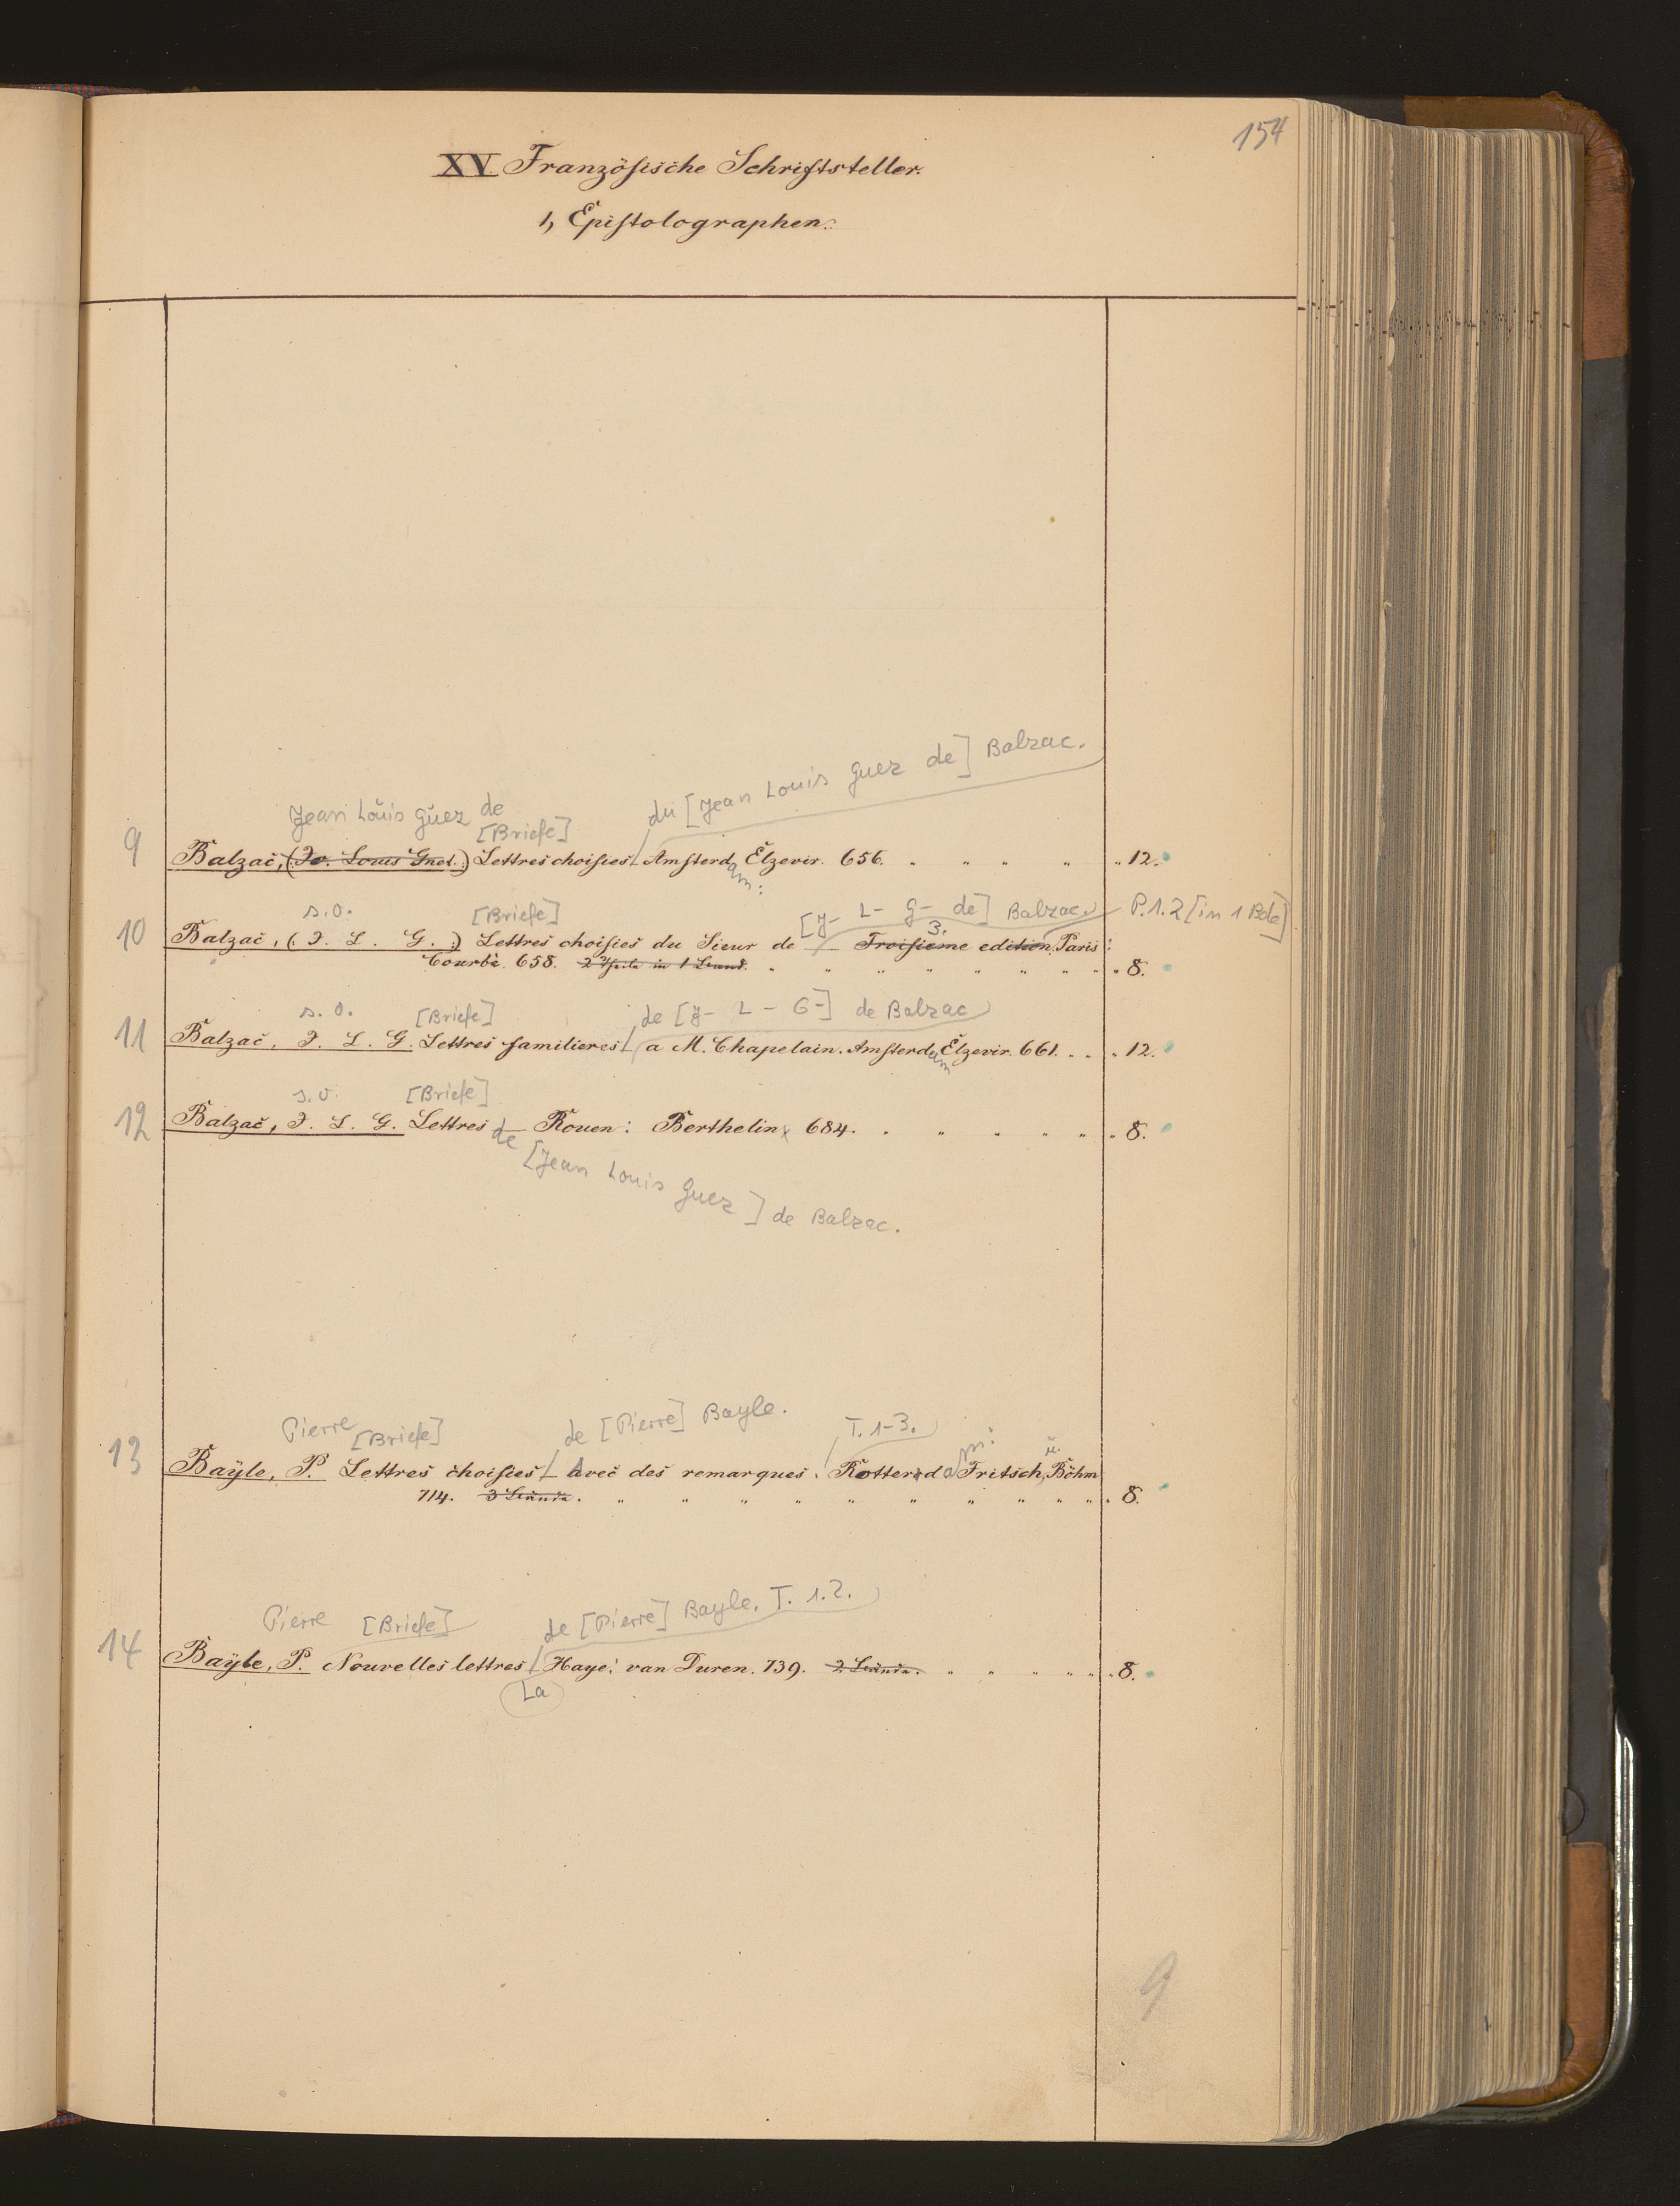 154
XV. Französische Schriftsteller.
1, Epistolographen.
du [Jean Louis Guez de] Balzac.
Jean Louis Guez de
[Briefe]
9 Balzac, (Jo. Louis Guez.) Lettres choisies Amsterd Elzevir. 656. " 12.
am:
s.o. [Briefe] [J- L- G- de] Balzac. P.1.2 [in 1 Bde]
3.
10 Balzac, (J. L. G.) Lettres choisies du Sieur de — Troisieme edition. Paris:
Courbé. 658. 2 Theile in 1 Band. " 8.
s.o. [Briefe] de [J- L- G-] de Balzac
11 Balzac, J. L. G. Lettres familieres a M. Chapelain. Amsterd Elzevir. 661. " 12.
am
s.o. [Briefe]
12 Balzac, J. L. G. Lettres — Rouen: Berthelin 684. " 8.
de [Jean Louis Guez] de Balzac.
Pierre [Briefe] de [Pierre] Bayle. T. 1-3. am: u.
13 Bayle, P. Lettres choisies Avec des remarques. Rotterd Fritsch, Böhm
714. 3 Bände. " 8.
Pierre [Briefe] de [Pierre] Bayle. T. 1.2.
14 Bayle, P. Nouvelles lettres Haye: van Duren. 739. 2 Bände. " 8.
La
9